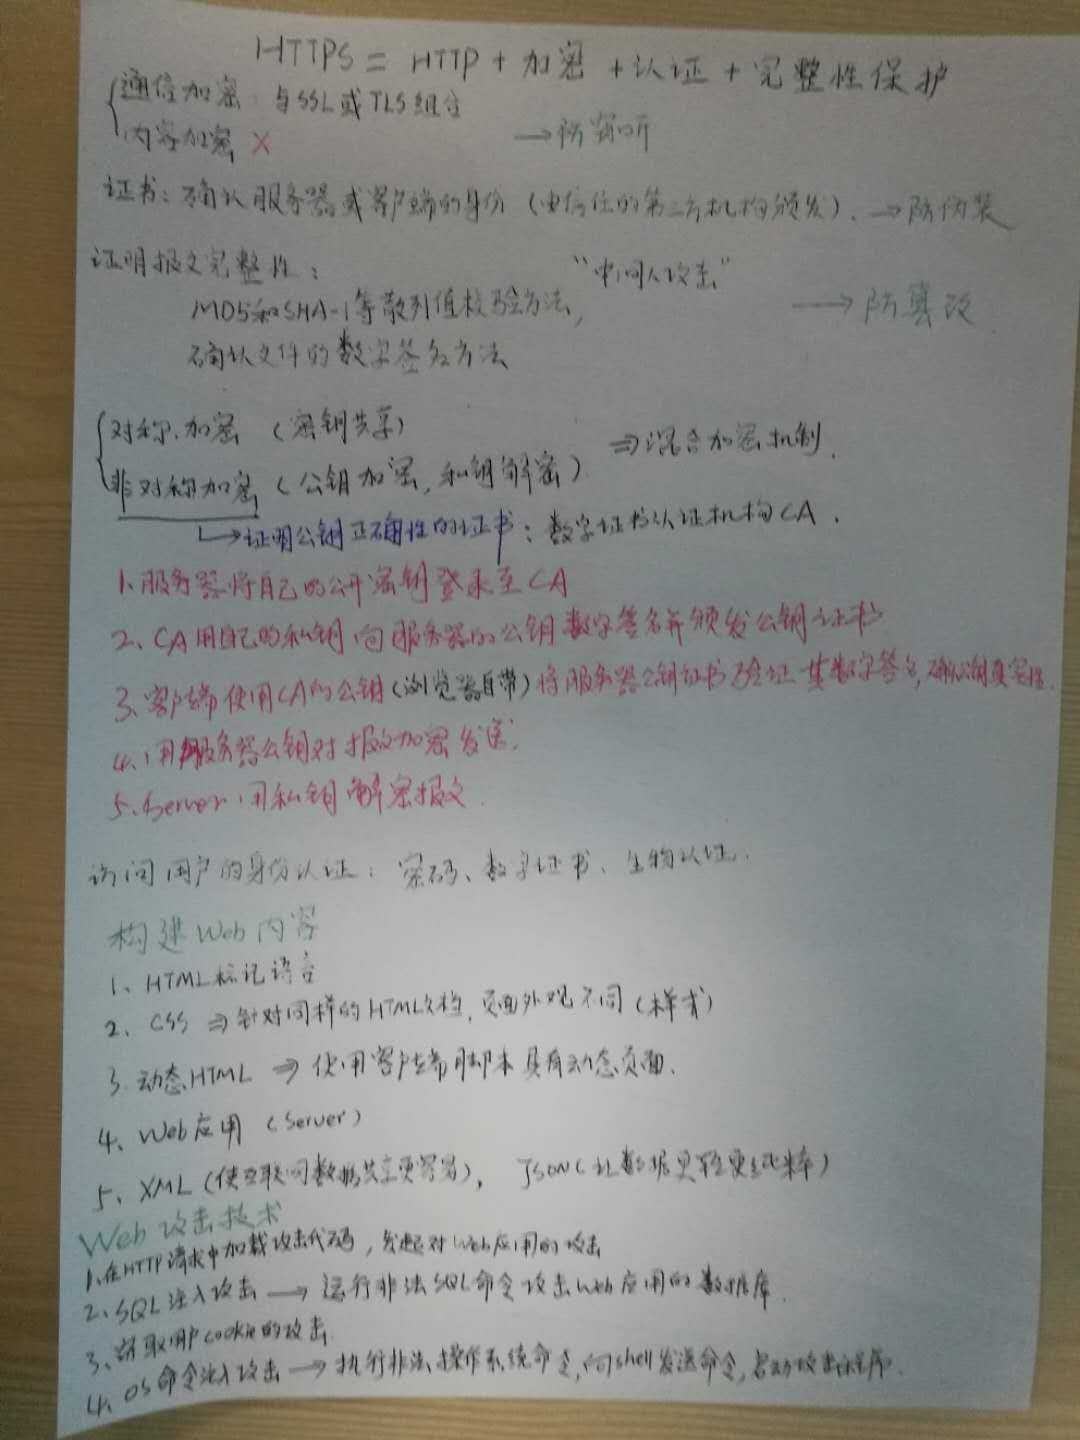 HTTPS = HTTP + 加密 + 认证 + 完整性保护
通信加密:与SSL或TLS组合
内容加密 X → 防窃听
证书:确认服务器或客户端的身份(由信任的第三方机构颁发). → 防伪装
证明报文完整性: "中间人攻击"
MD5和SHA-1等散列值校验方法, → 防篡改
确认文件的数字签名方法
对称加密 (密钥共享) ⇒ 混合加密机制.
非对称加密 (公钥加密,私钥解密)
↳证明公钥正确性的证书:数字证书认证机构CA.
1.服务器将自己的公开密钥登录至CA
2、CA用自己的私钥向服务器的公钥数字签名并颁发公钥证书
3、客户端使用CA的公钥(浏览器自带)将服务器公钥证书验证其数字签名,确认公钥真实性.
4、用服务器公钥对报文加密发送.
5、Server用私钥解密报文.
访问用户的身份认证:密码、数字证书、生物认证.
构建Web内容
1、HTML标记语言
2、CSS ⇒ 针对同样的HTML文档,页面外观不同(样式)
3.动态HTML ⇒ 使用客户端脚本具有动态页面.
4、Web应用 (Server)
5、XML(使互联网数据共享更容易), JSON(让数据更轻更纯粹)
Web攻击技术
1、在HTTP请求中加载攻击代码,发起对Web应用的攻击
2、SQL注入攻击 → 运行非法SQL命令攻击Web应用的数据库.
3、窃取用户cookie的攻击.
4、OS命令注入攻击 → 执行非法操作系统命令,向shell发送命令,启动攻击程序.